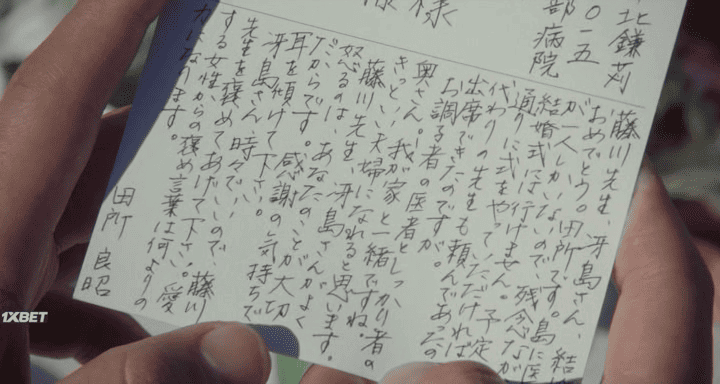 様
北鎌苅
〇一五
部病院
藤川先生、冴島さん、結
おめでとう。田所です。島に医
が一人しかいないので、残念なが
結婚式には行けません。予定
通りに式をやっていただければ
代わりの先生も頼んであったの
出席できたのですが。
お調子者の医者としっかり者の
奥さん。我が家と一緒ですね。
きっといい夫婦になれると思います。
藤川先生、冴島さんがよく
怒るのは、あなたのことが大切
だからです。感謝の気持ちで
耳を傾けて下さい。
冴島さん、時々でいいので、藤川
先生を褒めてあげて下さい。愛
する女性からの褒め言葉は何よりの
力になります。
田所 良昭
1XBET